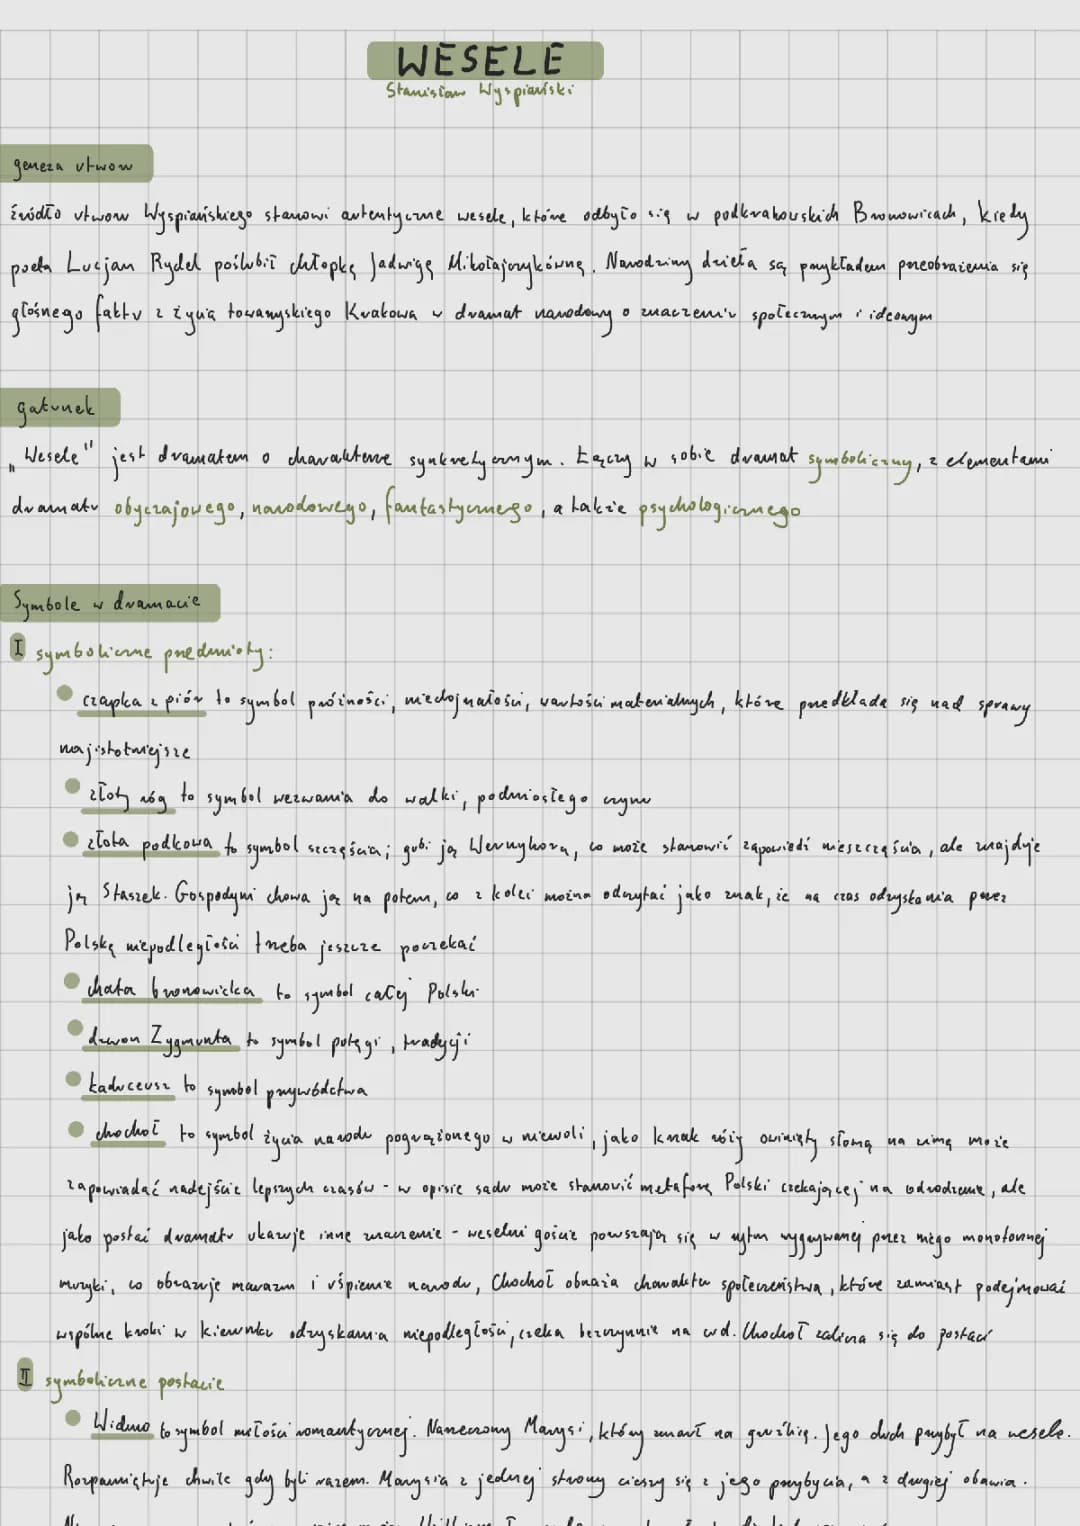 WESELE
Stanisław Wyspiański
geneza utworu
źródło utworu Wyspiańskiego stanowi autentyczne wesele, które odbyło się w podkrakowskich Bronowicach, kiedy
poeta Lucjan Rydel poślubił chłopkę Jadwigę Mikołajczykównę. Narodziny dzieła są przykładem przeobrażenia się
głośnego faktu z życia towarzyskiego Krakowa w dramat narodowy o znaczeniu społecznym i ideowym
gatunek
„Wesele" jest dramatem o charakterze synkretycznym. Łączy w sobie dramat symboliczny, z elementami
dramatu obyczajowego, narodowego, fantastycznego, a także psychologicznego
Symbole w dramacie
I symboliczne przedmioty:
czapka z piór to symbol próżności, niedojrzałości, wartości materialnych, które przedkłada się nad sprawy
najistotniejsze
złoty róg to symbol wezwania do walki, podniosłego czynu
złota podkowa to symbol szczęścia; gubi ją Wernyhora, co może stanowić zapowiedź nieszczęścia, ale znajduje
ją Staszek. Gospodyni chowa ją na potem, co z kolei można odczytać jako znak, że na czas odzyskania przez
Polskę niepodległości trzeba jeszcze poczekać
chata bronowicka to symbol całej Polski
dzwon Zygmunta to symbol potęgi, tradycji
kaduceusz to symbol przywództwa
chochoł to symbol życia narodu pogrążonego w niewoli, jako krzak róży owinięty słomą na zimę może
zapowiadać nadejście lepszych czasów - w opisie sadu może stanowić metaforę Polski czekającej na odrodzenie, ale
jako postać dramatu ukazuje inne znaczenie - weselni goście poruszają się w rytm wygrywanej przez niego monotonnej
muzyki, co obrazuje marazm i uśpienie narodu, Chochoł obnaża charakter społeczeństwa, które zamiast podejmować
wspólne kroki w kierunku odzyskania niepodległości, czeka bezczynnie na cud. Chochoł zalicza się do postaci
II symboliczne postacie
Widmo to symbol miłości romantycznej. Narzeczony Marysi, który zmarł na gruźlicę. Jego duch przybył na wesele.
Rozpamiętuje chwile gdy byli razem. Marysia z jednej strony cieszy się z jego przybycia, a z drugiej obawia.